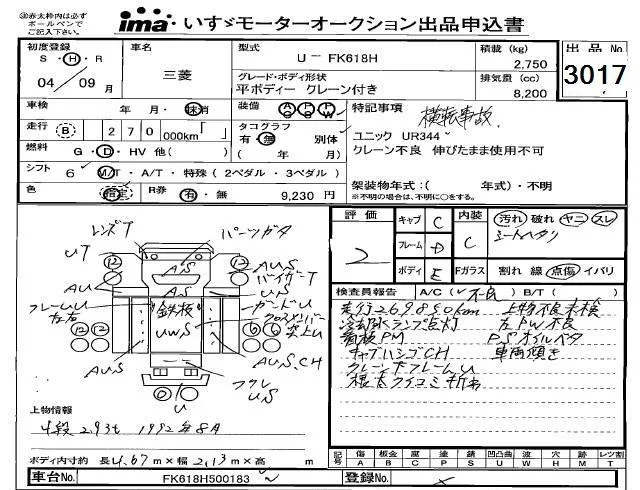 ※赤太枠内は必ず
ボールペンで
ご記入下さい。
ima いすゞモーターオークション出品申込書
初度登録 S・H・R 04／09月
車名 三菱
型式 U－FK618H
積載 (kg) 2,750
出品No 3017
グレード・ボディ形状 平ボディー クレーン付き
排気量 (cc) 8,200
車検 年・月・抹消
装備 AC PS PW
特記事項 横転事故
走行 B 270 000km「 」
タコグラフ 有・無 別体 ( 年 月)
ユニック UR344
クレーン不良 伸びたまま使用不可
燃料 G・D・HV 他( )
シフト 6 M/T・A/T・特殊(2ペダル・3ペダル)
架装物年式:( 年式)・不明
※不明の場合は、不明に○をする。
色 指定 R券 有・無 9,230 円
評価
キャブ C
内装 C
汚れ 破れ ヤニ スレ
シートヘタリ
フレーム D
ボディ E
Fガラス 割れ 線 点傷 イバリ
レンズT
パーツガタ
UT
⑫ ⑫
A・S
A,U,S
AU
A,S
US
フレームU
鉄板
ガードU
UWS
クロスメンバー
A,U,S
A,U,S,CH
⑫ ⑫ ⑥ ⑥
U
US
検査員報告 A/C( 不良 ) B/T( )
走行269850km 上物不良未検
冷却水ランプ点灯 左PW不良
看板PM PSオイルベタ
キャブハシゴCH 車両傾き
クレーン下フレームU
根太クイコミ折れ
上物情報
4段 2.93t 1992年8月
ボディ内寸約 長4.67m×幅2.13m×高 m
記号 傷A 板金B 腐C 塗P 錆S 凹凸曲U 波W 穴H 跡M レンズ割T
車台No. FK618H500183
登録No.